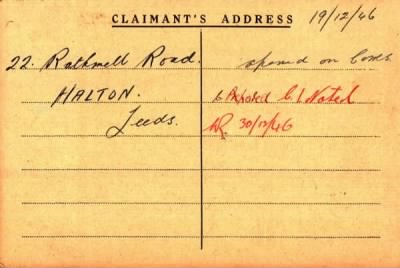 CLAIMANT'S ADDRESS 19/12/46
22. Rathmell Road.
HALTON.
Leeds.
opened on
C/ Noted
30/12/46